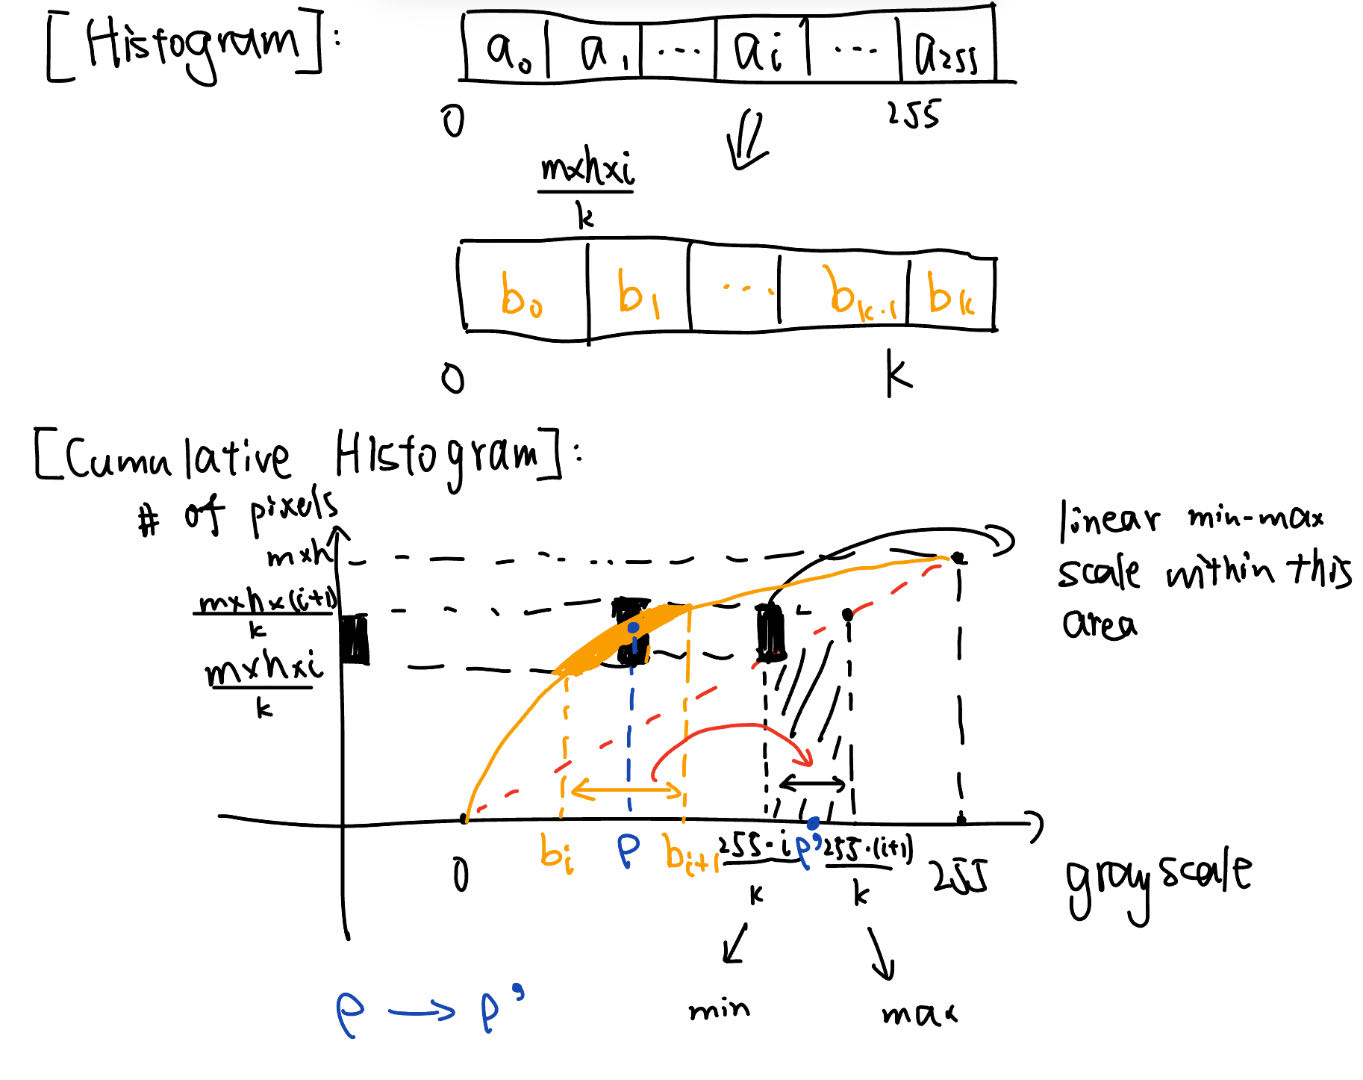 [Histogram]:
a₀ a₁ ... aᵢ ... a₂₅₅
0 255
m×h×i
k
b₀ b₁ ... bₖ₋₁ bₖ
0 k
[Cumulative Histogram]:
# of pixels
m×h
m×h×(i+1)
k
m×h×i
k
linear min-max
scale within this
area
0 bᵢ P bᵢ₊₁ 255·i P' 255·(i+1) 255
k k
grayscale
min max
P → P'